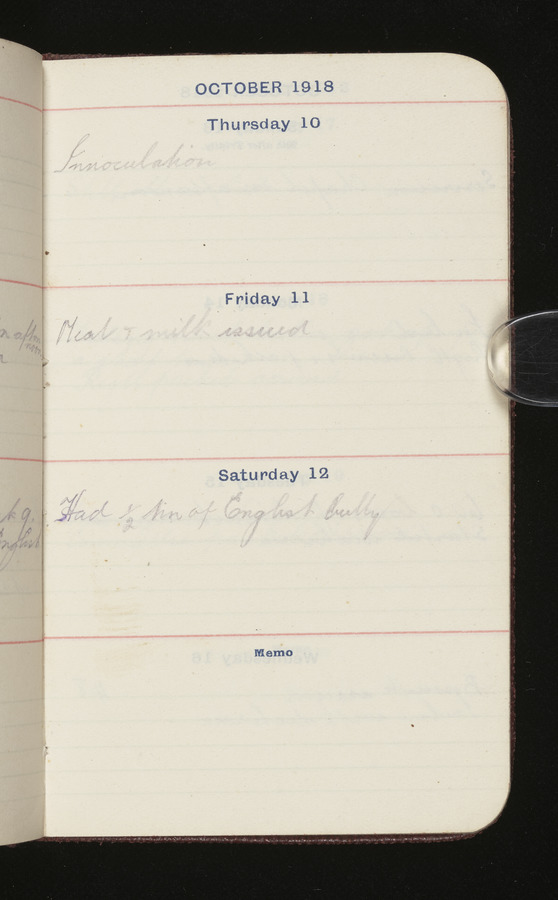 OCTOBER 1918
Thursday 10
Innoculation
Friday 11
Meat & milk issued
Saturday 12
Had ½ tin of English Bully
Memo